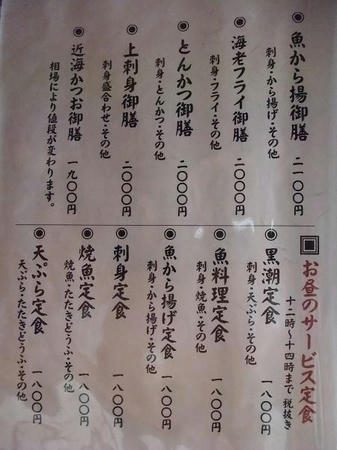 ◉魚から揚御膳 二一〇〇円
刺身・から揚げ・その他
◉海老フライ御膳 二〇〇〇円
刺身・フライ・その他
◉とんかつ御膳 二〇〇〇円
刺身・とんかつ・その他
◉上刺身御膳 二〇〇〇円
刺身盛合わせ・その他
◉近海かつお御膳 一九〇〇円
相場により値段が変わります。
▣お昼のサービス定食
十二時〜十四時まで 税抜き
◉黒潮定食 一八〇〇円
刺身・天ぷら・その他
◉魚料理定食 一八〇〇円
刺身・焼魚・その他
◉魚から揚げ定食 一八〇〇円
刺身・から揚げ・その他
◉刺身定食 一八〇〇円
◉焼魚定食 一八〇〇円
焼魚・たたきどうふ・その他
◉天ぷら定食 一八〇〇円
天ぷら・たたきどうふ・その他